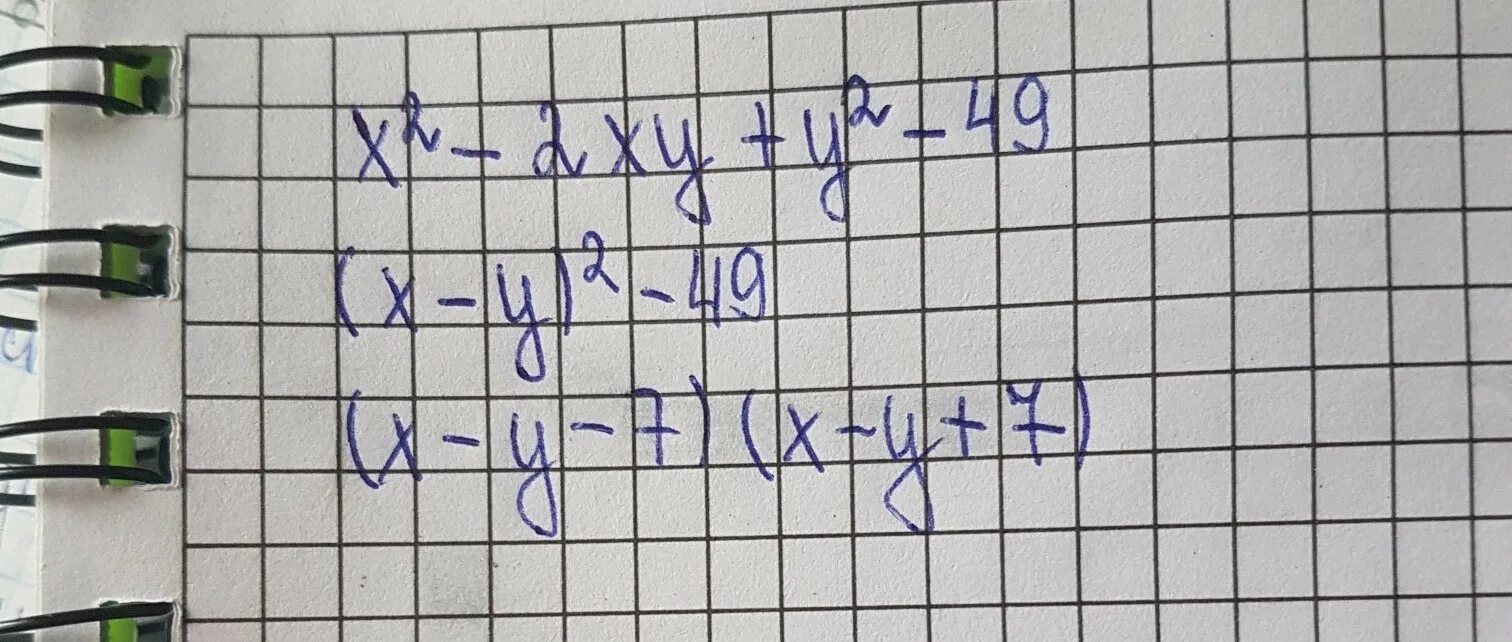 x² - 2xy + y² - 49
(x - y)² - 49
(x - y - 7) (x - y + 7)